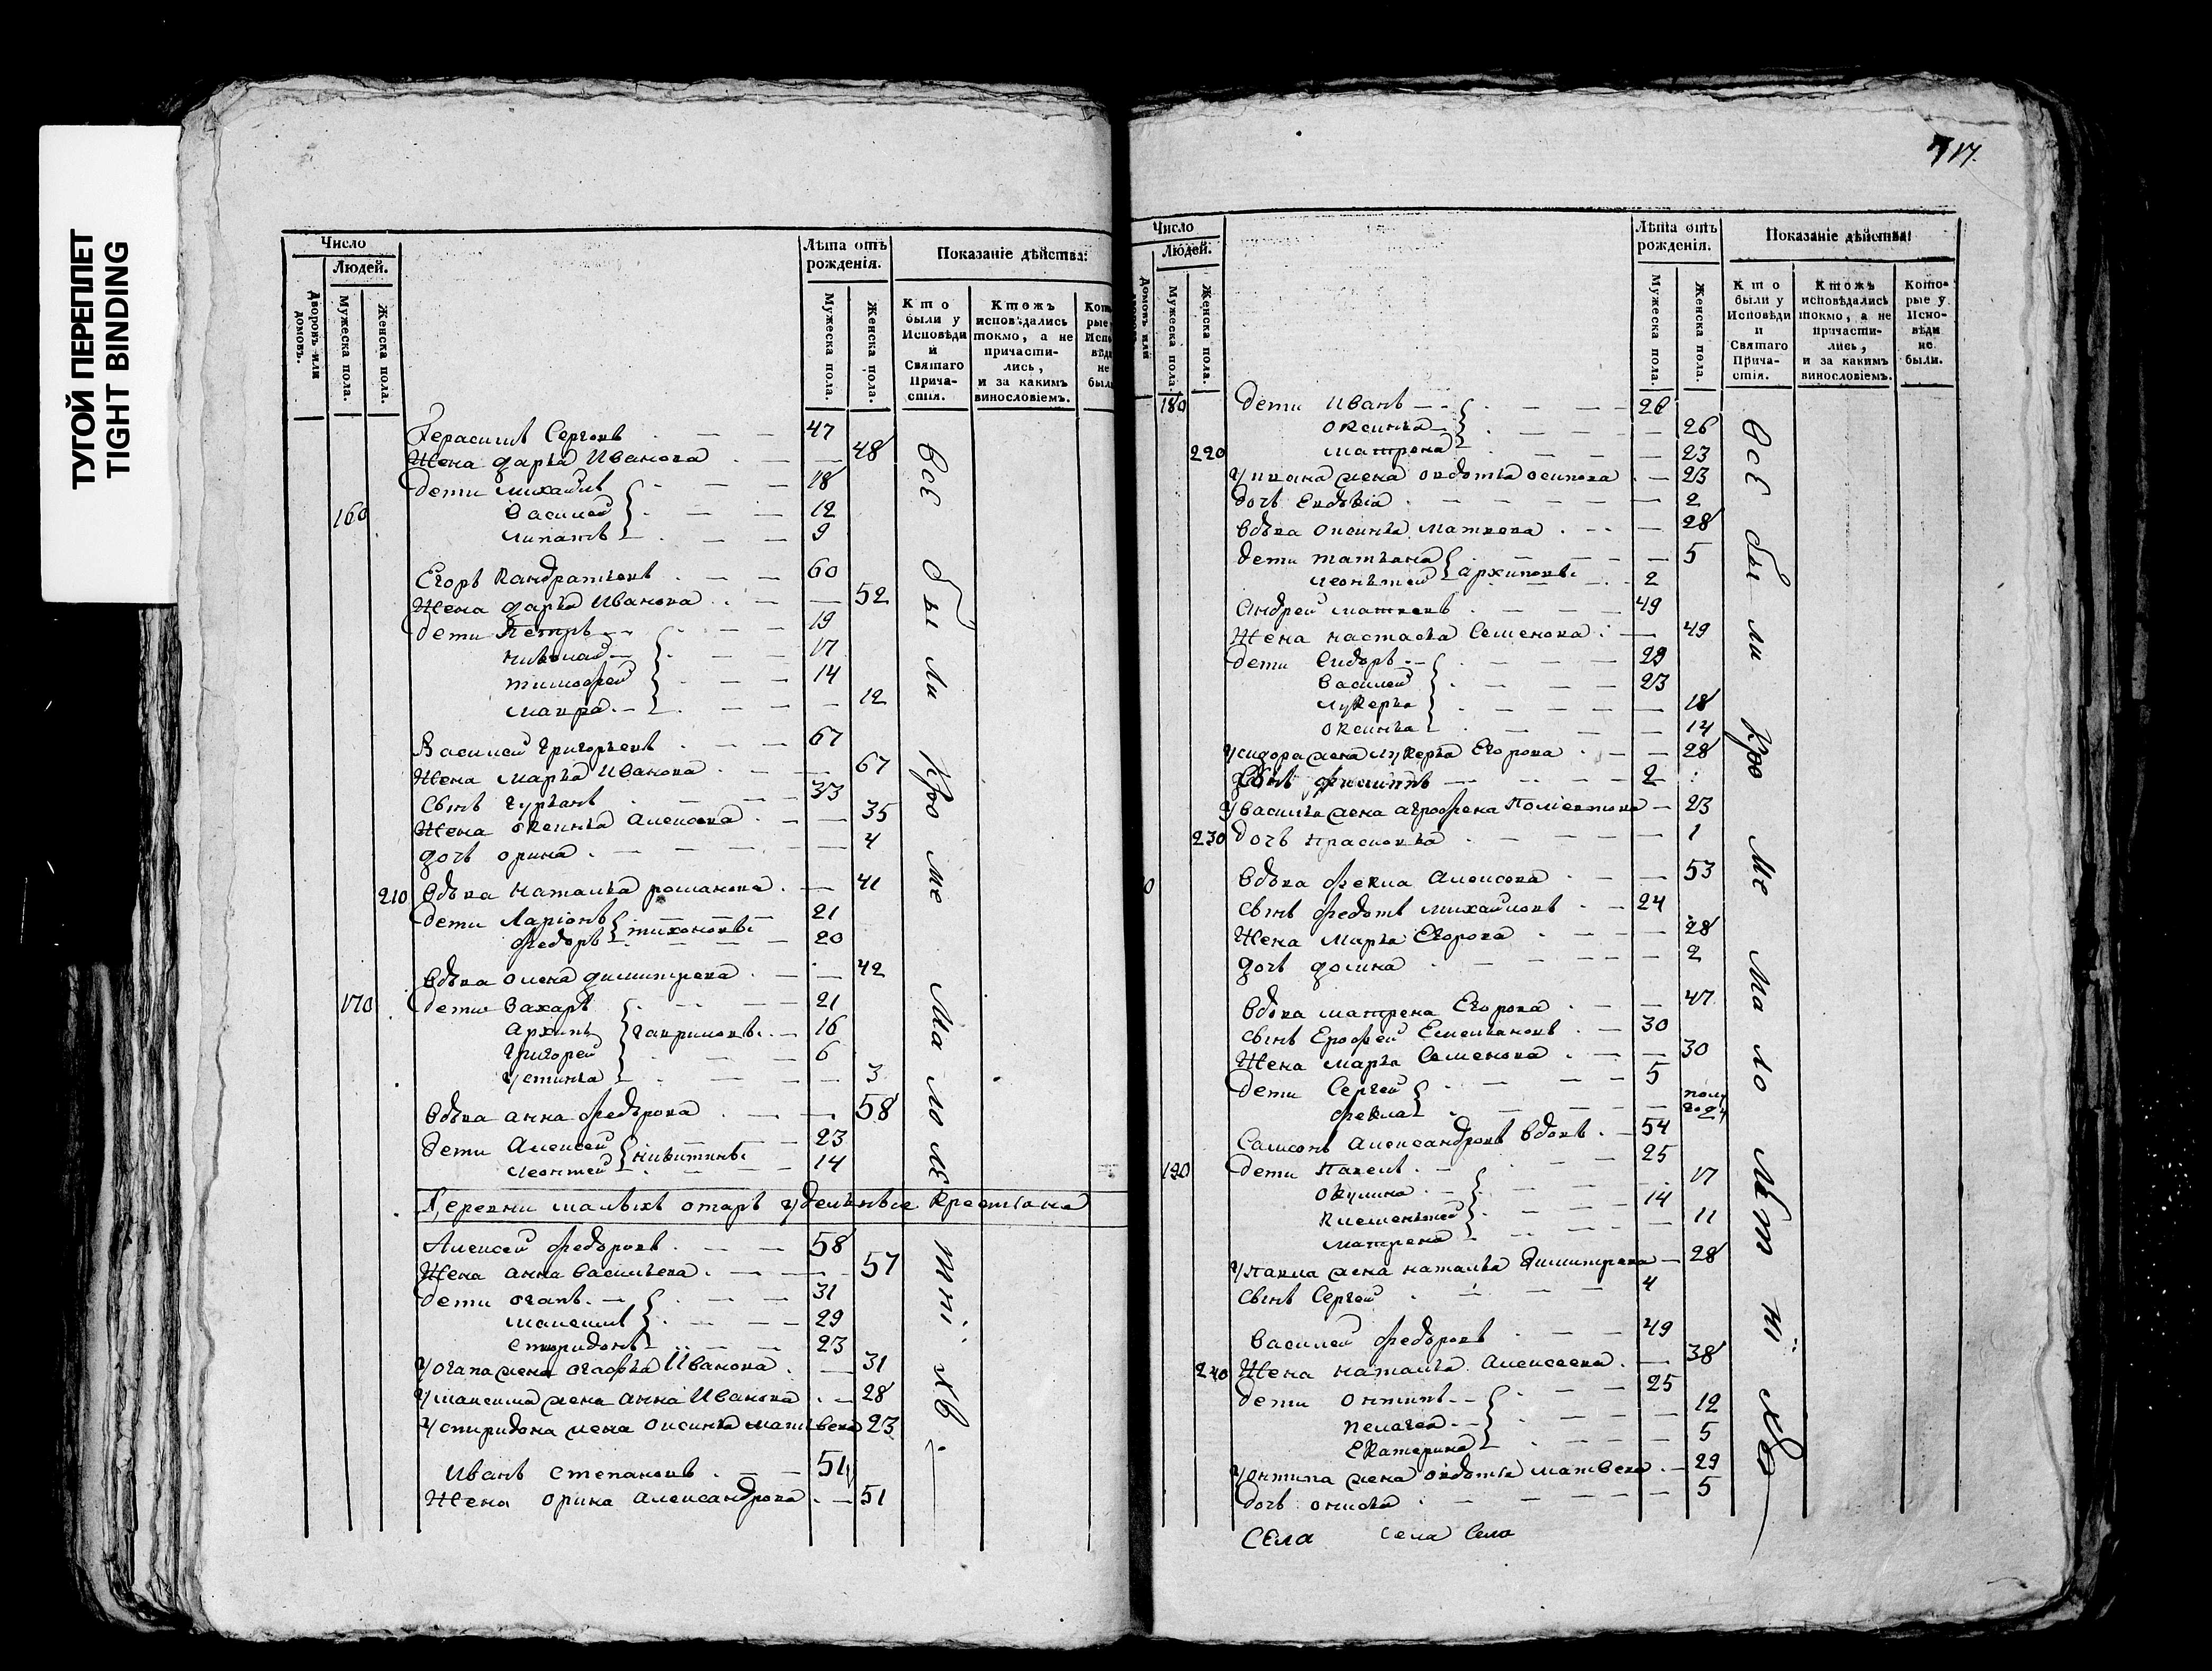 ТУГОЙ ПЕРЕПЛЕТ
TIGHT BINDING
Число
Людей.
Дворовъ или домовъ.
Мужеска пола.
Женска пола.
Лѣта отъ рожденія.
Мужеска пола.
Женска пола.
Показаніе дѣйства:
Кто были у Исповѣди и Святаго Причастія.
Ктожъ исповѣдались токмо, а не причастились, и за какимъ винословіемъ.
Герасимъ Сергѣевъ 47
Жена дарья Иванова 48
дети михаилъ 18
160 Василей 12
липатъ 9
Егоръ Кандратьевъ 60
Жена дарья Иванова 52
дети Петръ 19
николай 17
тимофей 14
мавра 12
Василей григорьевъ 67
Жена марья Иванова 67
Сынъ гурьянъ 33
Жена оксинья алексеева 35
дочь орина 4
210 вдова наталья романова 41
дети Ларіонъ тихоновы 21
федоръ 20
вдова олена димитрева 42
170 дети Захаръ 21
архипъ гавриловы 16
григорей 6
устинья 3
вдова анна федорова 58
дети алексей никитины 23
леонтей 14
Деревни малыхъ отаръ удельные крестьяне
Алексей федоровъ 58
Жена анна васильева 57
дети огапъ 31
максимъ 29
спиридонъ 23
у огапа жена огафья Иванова 31
у максима жена анна Иванова 28
у спиридона жена оксинья матвева 23
Иванъ степановъ 51
Жена орина александрова 51
все были кроме малолетнихъ
717.
Число
Людей.
Домовъ или
Мужеска пола.
Женска пола.
Лѣта отъ рожденія.
Мужеска пола.
Женска пола.
Показаніе дѣйства:
Кто были у Исповѣди и Святаго Причастія.
Ктожъ исповѣдались токмо, а не причастились, и за какимъ винословіемъ.
Которые у Исповѣди не были.
180 дети Иванъ 26
оксинья 26
220 матрена 23
у ивана жена овдотья осипова 23
дочь Евдокия 2
вдова оксинья матвева 28
дети татьяна архиповы 5
леонтей 2
Андрей матвевъ 49
Жена настасья Семенова 49
дети Сидоръ 29
Василей 23
лукерья 18
оксинья 14
у сидора жена лукерья Егорова 28
Сынъ филиппъ 2
у василья жена аграфена Полиектова 23
230 дочь прасковья 1
вдова фекла алексеева 53
сынъ федотъ михайловъ 24
Жена марья Егорова 28
дочь домна 2
вдова матрена Егорова 47
сынъ Ерофей Емельяновъ 30
Жена марья Семенова 30
дети Сергей 5
фекла полу году
Самсонъ александровъ вдовъ 54
190 дети Павелъ 25
окулина 17
клементей 14
матрена 11
у павла жена наталья димитрева 28
сынъ Сергей 4
Василей федоровъ 49
240 Жена наталья алексеева 38
дети онтипъ 25
пелагея 12
Екатерина 5
у онтипа жена овдотья матвева 29
дочь онисья 5
все были кроме малолетнихъ
СЕла села Село